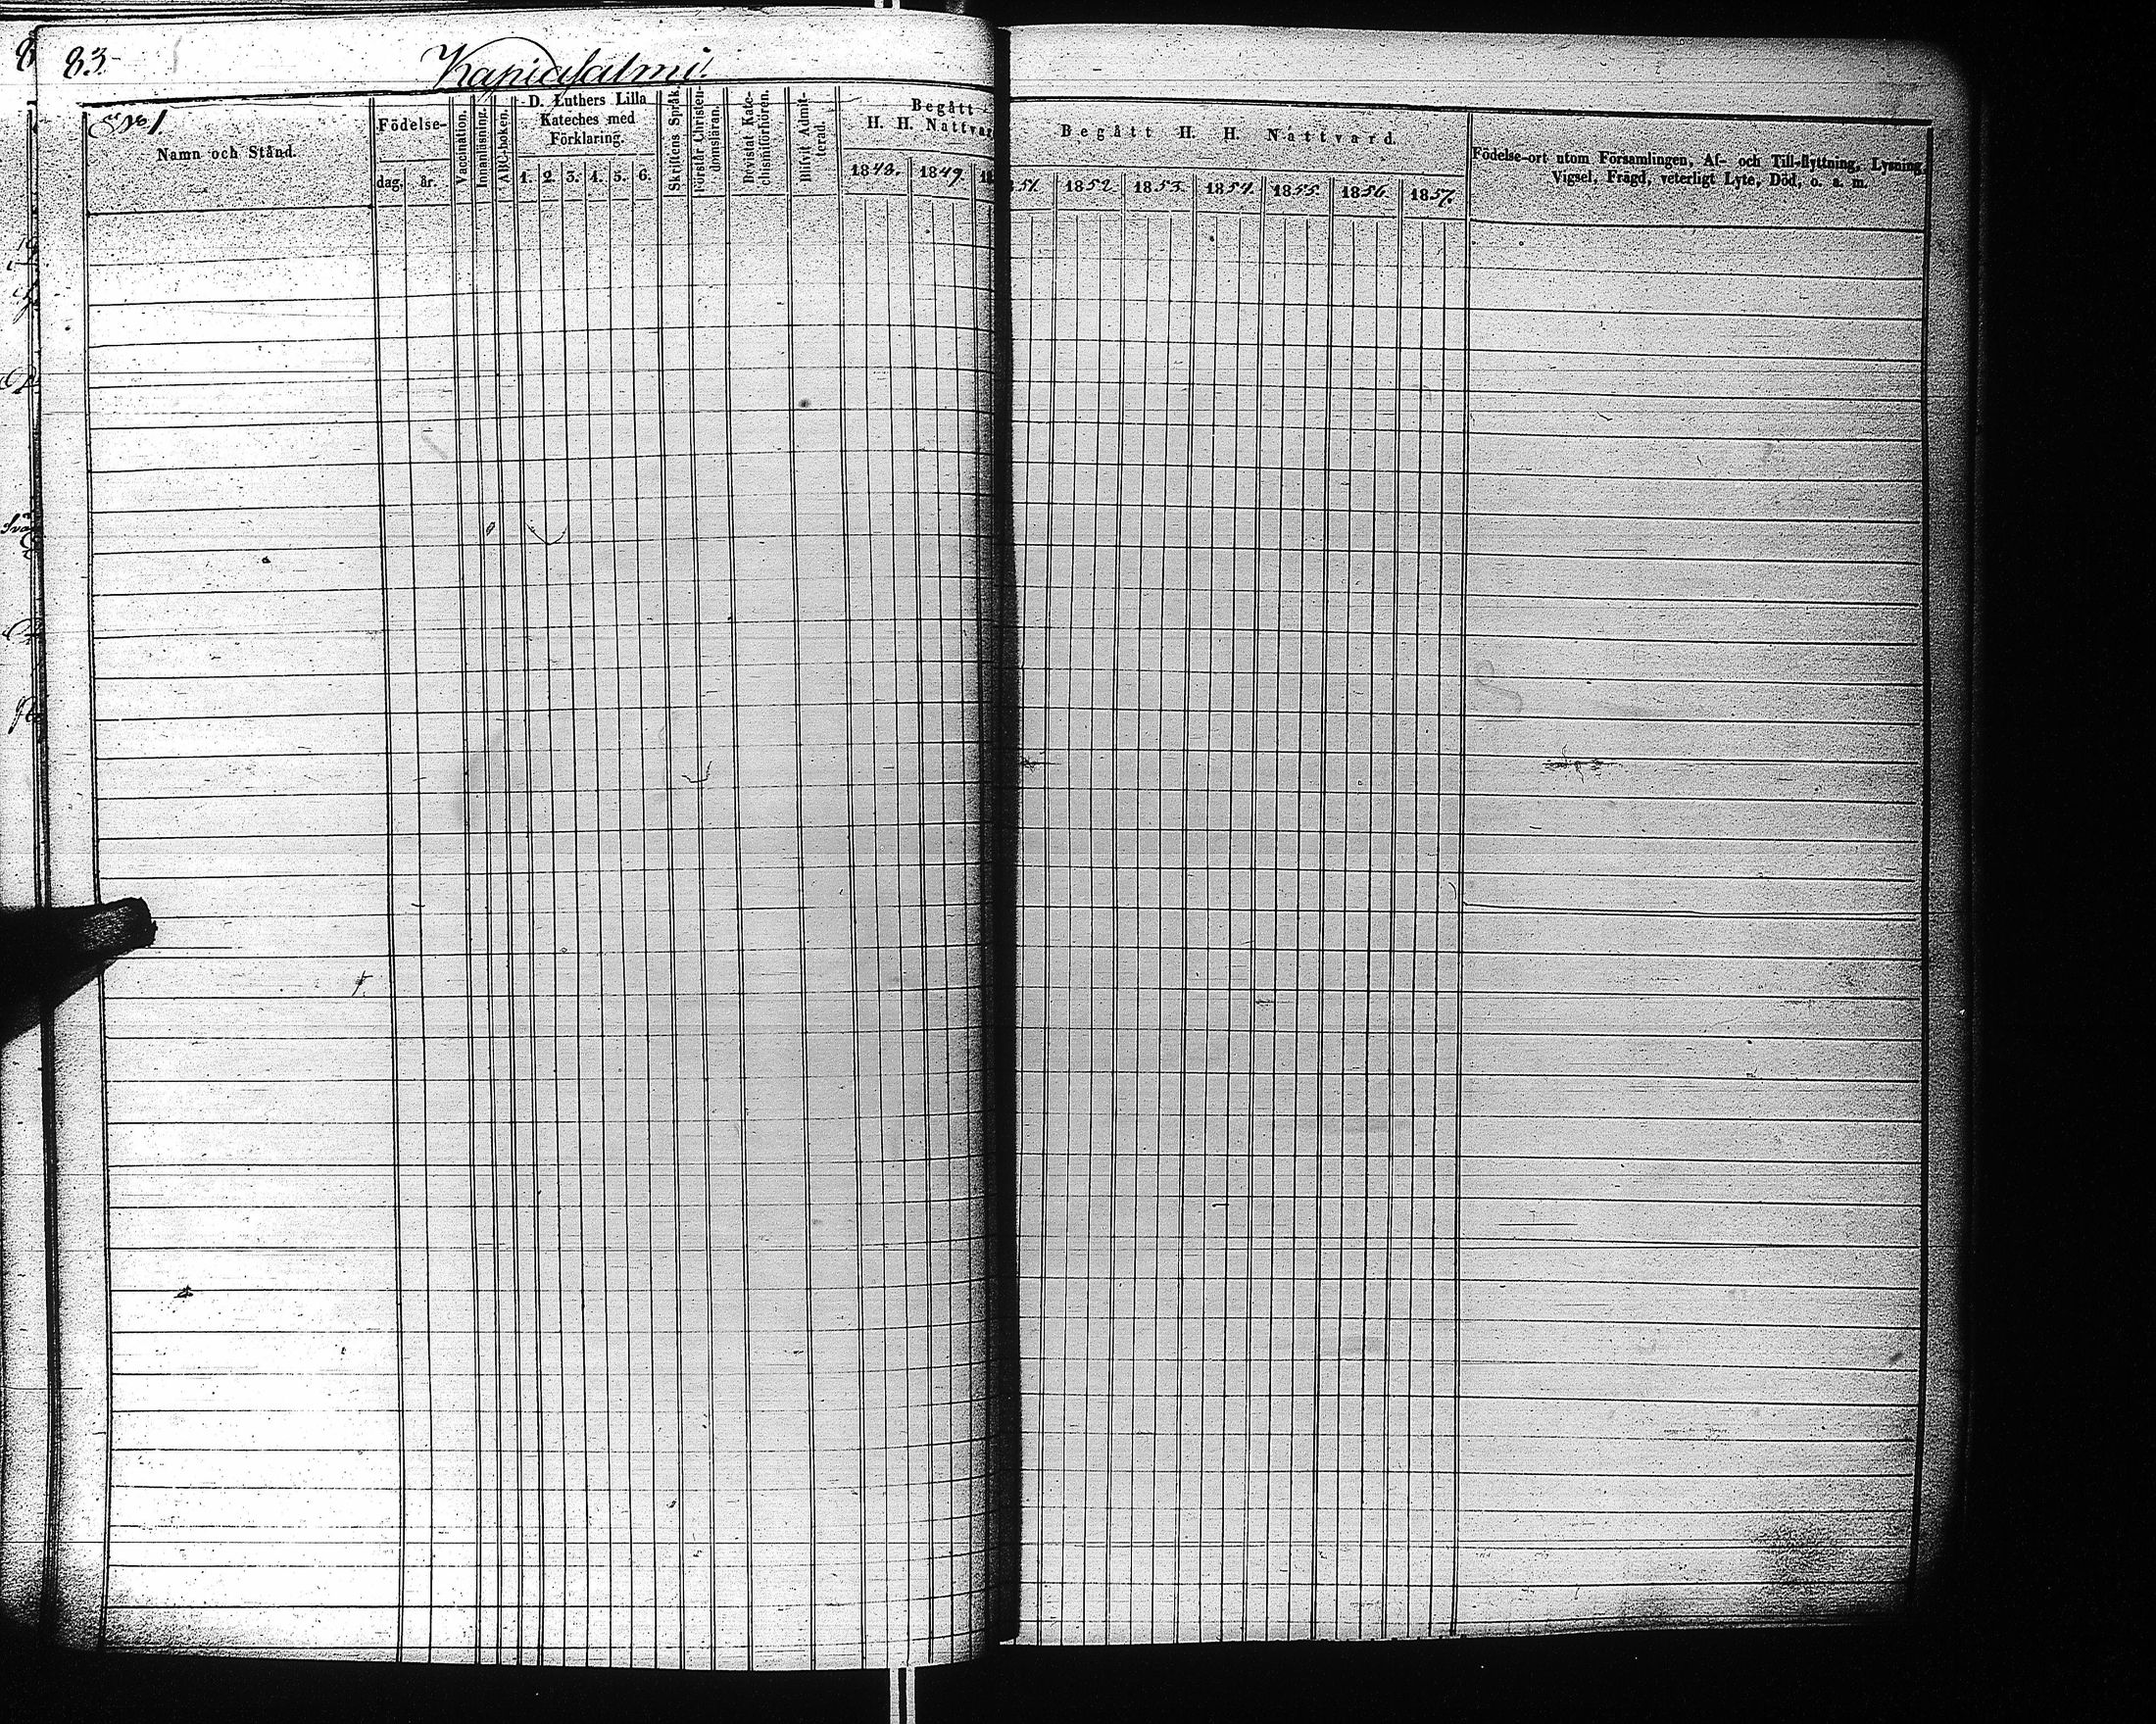 83
Kapiasalmi.
No 1
Namn och Stånd.
Födelse-
dag. år.
Vaccination.
Innanläsning.
ABC-boken.
D. Luthers Lilla
Kateches med
Förklaring.
1. 2. 3. 4. 5. 6.
Skriftens Språk.
Förstår Christen-
domsläran.
Bevistat Kate-
chismiförhören.
Blifvit Admit-
terad.
Begått
H. H. Nattvar
1848. 1849. 18
Begått H. H. Nattvard.
51. 1852. 1853. 1854. 1855. 1856. 1857.
Födelse-ort utom Församlingen, Af- och Till-flyttning, Lysning,
Vigsel, Frägd, veterligt Lyte, Död, o. s. m.